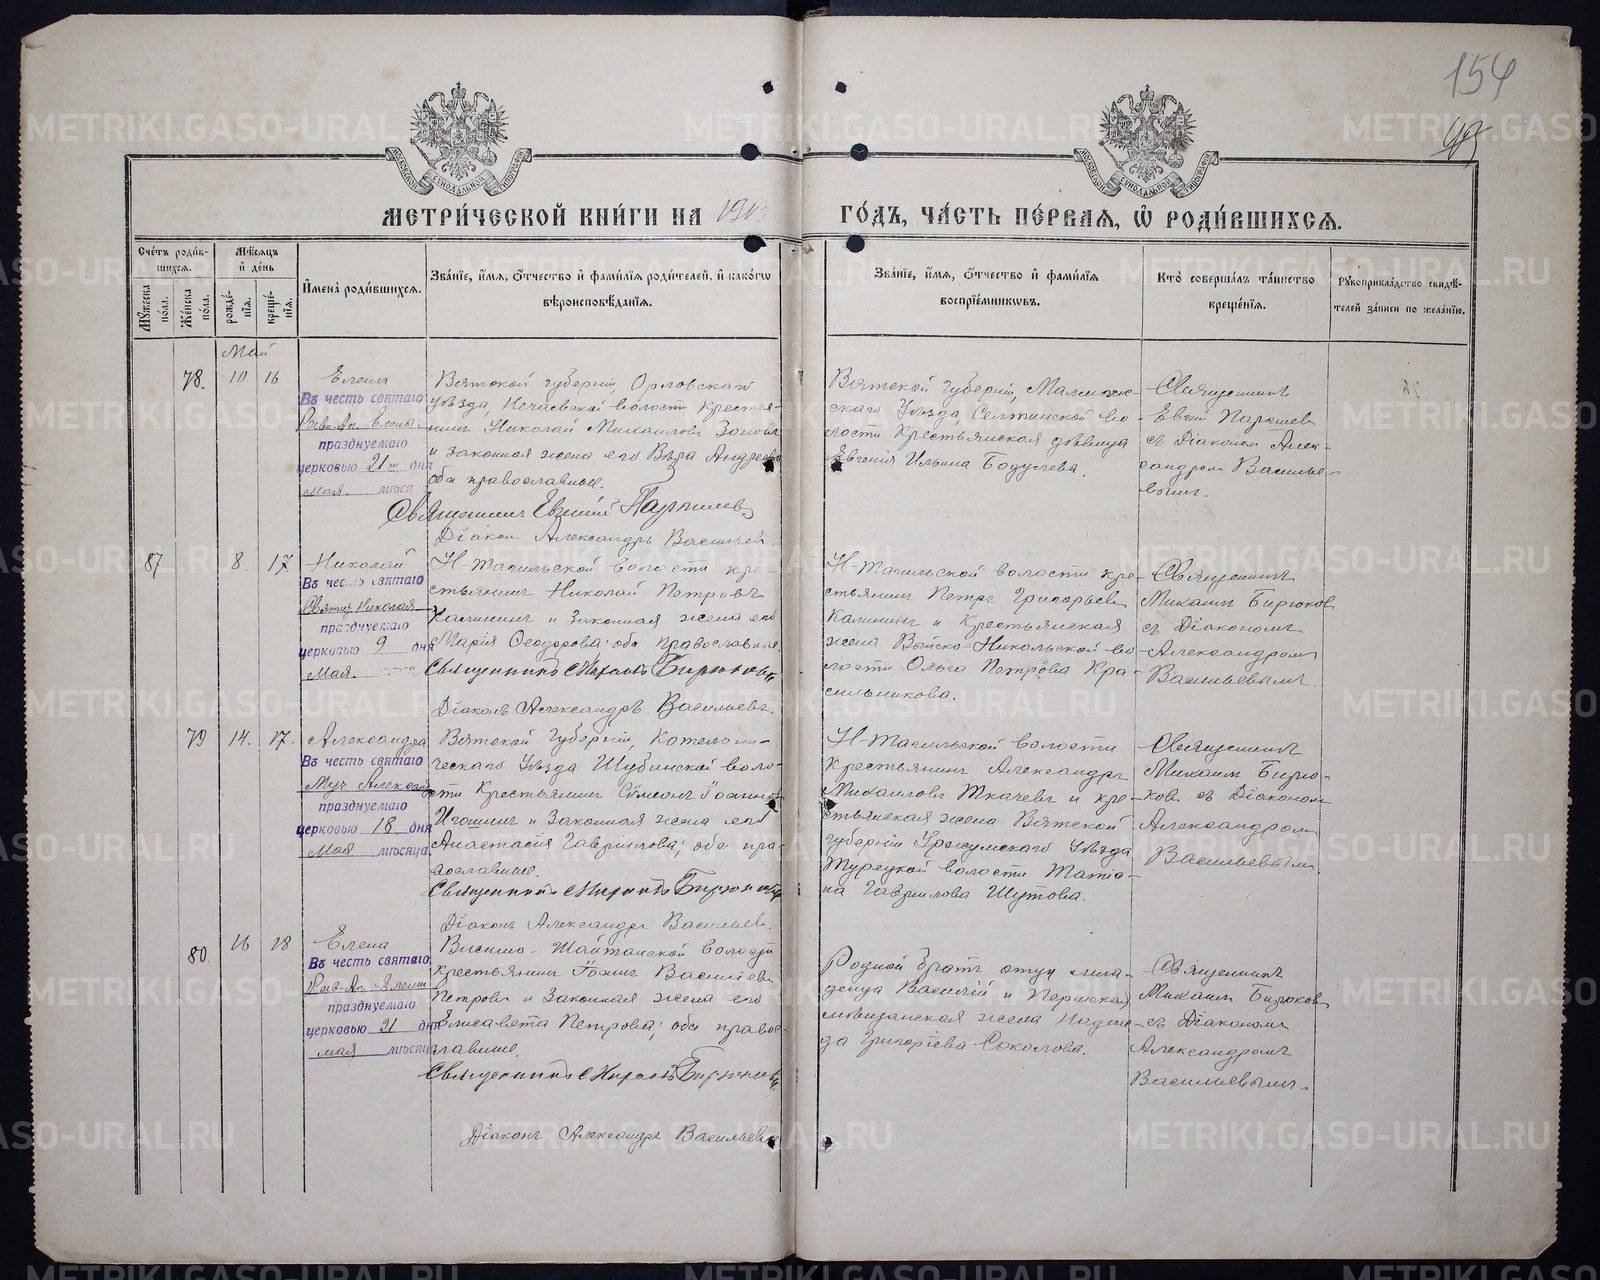 154
49
МОСКОВСКОЙ СѴНОДАЛЬНОЙ ТИПОГРАФІИ
МОСКОВСКОЙ СѴНОДАЛЬНОЙ ТИПОГРАФІИ
МЕТРИЧЕСКОЙ КНИГИ НА 1913 ГОДЪ, ЧАСТЬ ПЕРВАЯ, Ѡ РОДИВШИХСЯ.
Счетъ родившихся.
Мужеска пола.
Женска пола.
Мѣсяцъ и день
рожденія.
крещенія.
Имена родившихся.
Званіе, имя, отчество и фамилія родителей, и какогѡ вѣроисповѣданія.
Званіе, имя, отчество и фамилія воспріемникѡвъ.
Кто совершалъ таинство крещенія.
Рукоприкладство свидѣтелей записи по желанію.
Май
78. 10 16
Елена
Въ честь святаго
Равн Ап. Елены
празднуемаго
церковью 21го дня
мая. мѣсяца
Вятской губерніи Орловскаго
уѣзда, Нечаевской волости крестья-
нинъ Николай Михаиловъ
и законная жена его Вѣра Андреева
оба православные.
Священникъ Евгеній Парышевъ
Діаконъ Александръ Васильевъ.
Вятской губерніи, Малмыж-
скаго уѣзда, Селтинской во-
лости крестьянская дѣвица
Евгенія Ильина Бодулева.
Священникъ
Евгній Парышев
съ Діаконом Алек-
сандром Василье-
вымъ.
87 8. 17
Николай
Въ честь святаго
Святит Николая
празднуемаго
церковью 9 дня
Мая.
Н-Тагильской волости кре-
стьянинъ Николай Петровъ
Калининъ и законная жена его
Марія Ѳеодорова; оба православные.
Священникъ Михаилъ Бирюковъ
Діаконъ Александръ Васильевъ.
Н-Тагильской волости кре-
стьянинъ Петръ Григорьевъ
Калининъ и крестьянская
жена Выйско-Никольской во-
лости Ольга Петрова Кра-
сильникова.
Священникъ
Михаилъ Бирюков
съ Діакономъ
Александромъ
Васильевымъ.
79 14. 17.
Александра
Въ честь святаго
Муч Александ
празднуемаго
церковью 18 дня
Мая мѣсяца.
Вятской губерніи, Котельни-
ческаго уѣзда Шубинской воло-
сти крестьянинъ Сѵмеонъ Іоанновъ
Игошинъ и законная жена его
Анастасія Гавриилова; оба пра-
вославные.
Священникъ Михаилъ Бирюковъ
Діаконъ Александръ Васильевъ.
Н-Тагильской волости
крестьянинъ Александръ
Михаиловъ Ткачевъ и кре-
стьянская жена Вятской
губерніи Уржумскаго уѣзда
Турецкой волости Татіа-
на Гавриилова Шутова.
Священникъ
Михаилъ Бирю-
ков съ Діаконом
Александромъ
Васильевым
80 16 18
Елена
Въ честь святаго
Рав-Ап. Елены
празднуемаго
церковью 21 дня
мая мѣсяца
Висимо-Шайтанской волости
крестьянинъ Іоаннъ Василіевъ
Петровъ и законная жена его
Елисавета Петрова; оба правос-
лавные.
Священникъ Михаилъ Бирюковъ
Діаконъ Александръ Васильевъ
Родной братъ отца мла-
денца Василій и Пермская
мѣщанская жена Надеж-
да Григоріева Соколова.
Священникъ
Михаилъ Бирюков
съ Діакономъ
Александромъ
Васильевымъ.
METRIKI.GASO-URAL.RU